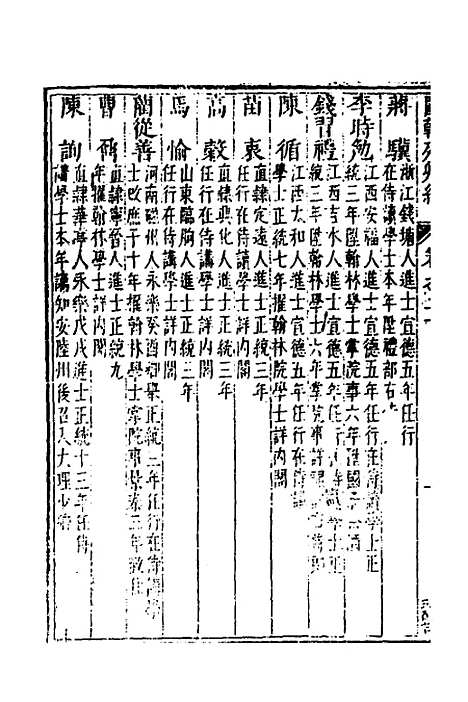 國朝列卿紀 卷之二十
蔣驥 浙江錢塘人進士宣德五年任行
在侍講學士本年陞禮部右
李時勉 江西安福人進士宣德五年任行在侍讀學士正
統三年陞翰林學士掌院事六年陞國子
錢習禮 江西吉水人進士宣德五年任行在侍讀學士正
統三年陞翰林學士六年掌院事詳
陳循 江西太和人進士宣德五年任行在侍講
學士正統七年擢翰林院學士詳內閣
苗衷 直隸定遠人進士正統三年
任行在侍讀學士詳內閣
高穀 直隸興化人進士正統三年
任行在侍講學士詳內閣
馬愉 山東臨朐人進士正統三年
任行在侍講學士詳內閣
藺從善 河南磁州人永樂癸酉鄉舉正統三年任行在侍講學
士致 十年擢翰林學士掌院事景泰三年致仕
曹鼐 直隸寧晉人進士正統九
年擢翰林學士詳內閣
陳詢 直隸華亭人永樂戊戌進士正統十三年任侍
講學士本年謫知安陸州後召入大理少卿